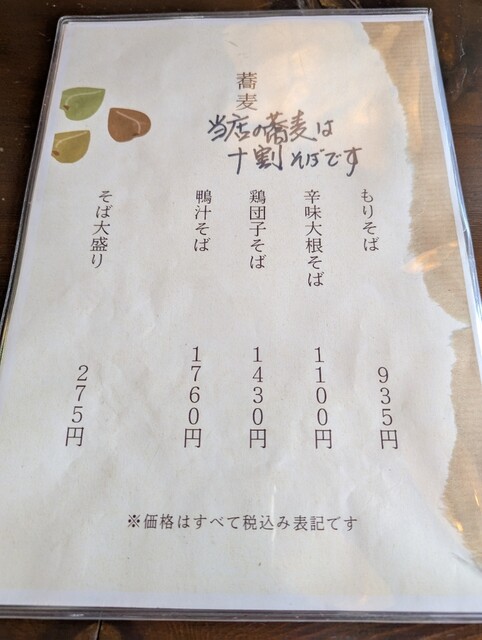 蕎麦
当店の蕎麦は
十割そばです
もりそば 935円
辛味大根そば 1100円
鶏団子そば 1430円
鴨汁そば 1760円
そば大盛り 275円
※価格はすべて税込み表記です